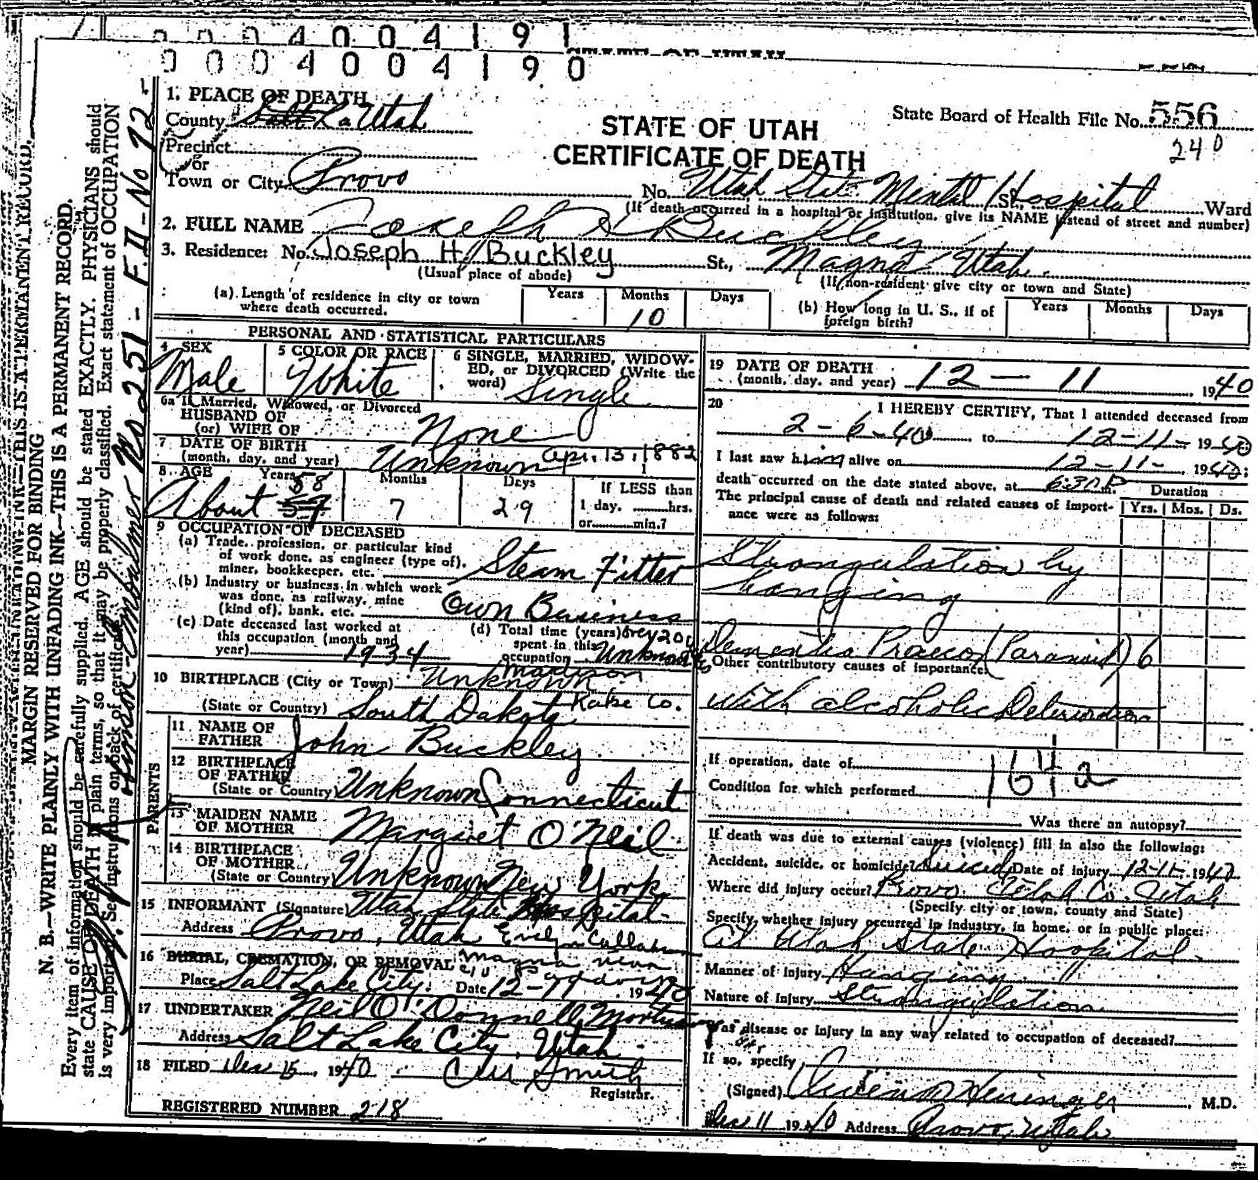 0 0 0 4 0 0 4 1 9 1
STATE OF UTAH
0 0 0 4 0 0 4 1 9 0
1. PLACE OF DEATH
County Salt La Utah
Precinct
or
Town or City Provo
STATE OF UTAH
CERTIFICATE OF DEATH
State Board of Health File No. 556
240
No. Utah State Mental Hospital St. Ward
(If death occurred in a hospital or institution, give its NAME instead of street and number)
2. FULL NAME Joseph H Buckley
3. Residence: No. Joseph H. Buckley St., Magna Utah.
(Usual place of abode) (If non-resident give city or town and State)
(a) Length of residence in city or town where death occurred. Years Months 10 Days
(b) How long in U. S., if of foreign birth? Years Months Days
PERSONAL AND STATISTICAL PARTICULARS
4 SEX Male
5 COLOR OR RACE White
6 SINGLE, MARRIED, WIDOWED, or DIVORCED (Write the word) Single
6a If Married, Widowed, or Divorced
HUSBAND OF
(or) WIFE OF None
7 DATE OF BIRTH
(month, day, and year) Unknown Apr. 13, 1882
8 AGE Years Months Days If LESS than
About 57 58 7 29 1 day, hrs.
or min.?
9 OCCUPATION OF DECEASED
(a) Trade, profession, or particular kind
of work done, as engineer (type of),
miner, bookkeeper, etc. Steam Fitter
(b) Industry or business in which work
was done, as railway, mine
(kind of), bank, etc. Own Business
(c) Date deceased last worked at
this occupation (month and
year) 1934
(d) Total time (years) over 20
spent in this
occupation Unknown
10 BIRTHPLACE (City or Town) Unknown Madison
(State or Country) South Dakota Lake Co.
PARENTS
11 NAME OF
FATHER John Buckley
12 BIRTHPLACE
OF FATHER
(State or Country) Unknown Connecticut
13 MAIDEN NAME
OF MOTHER Margret O'Neil
14 BIRTHPLACE
OF MOTHER
(State or Country) Unknown New York
15 INFORMANT (Signature) Utah State Hospital
Address Provo, Utah Evelyn Callahan
16 BURIAL, CREMATION, OR REMOVAL Magna
Place Salt Lake City. Date 12- 1940
17 UNDERTAKER Neil O'Donnell Mortuary
Address Salt Lake City, Utah
18 FILED Dec 15 1940 Smith
Registrar.
REGISTERED NUMBER 218
19 DATE OF DEATH
(month, day, and year) 12 - 11 1940
20 I HEREBY CERTIFY, That I attended deceased from
2-6-40 to 12-11- 1940
I last saw him alive on 12-11- 1940:
death occurred on the date stated above, at 6:30 P m. Duration
The principal cause of death and related causes of importance were as follows: Yrs. Mos. Ds.
Strangulation by
hanging
Dementia Praecox (Paranoid) 6
Other contributory causes of importance:
with alcoholic Deterioration
If operation, date of 164a
Condition for which performed
Was there an autopsy?
If death was due to external causes (violence) fill in also the following:
Accident, suicide, or homicide? Suicide Date of injury 12-11- 1940
Where did injury occur? Provo Utah Co. Utah
(Specify city or town, county and State)
Specify whether injury occurred in industry, in home, or in public place:
At Utah State Hospital
Manner of injury Hanging
Nature of injury Strangulation
Was disease or injury in any way related to occupation of deceased?
If so, specify
(Signed) Heninger, M.D.
Dec 11 1940 Address Provo, Utah
MARGIN RESERVED FOR BINDING
N. B.—WRITE PLAINLY WITH UNFADING INK—THIS IS A PERMANENT RECORD.
Every item of information should be carefully supplied. AGE should be stated EXACTLY. PHYSICIANS should
state CAUSE OF DEATH in plain terms, so that it may be properly classified. Exact statement of OCCUPATION
is very important. See instructions on back of certificate.
Embalmer No 251- F.D-No 72-